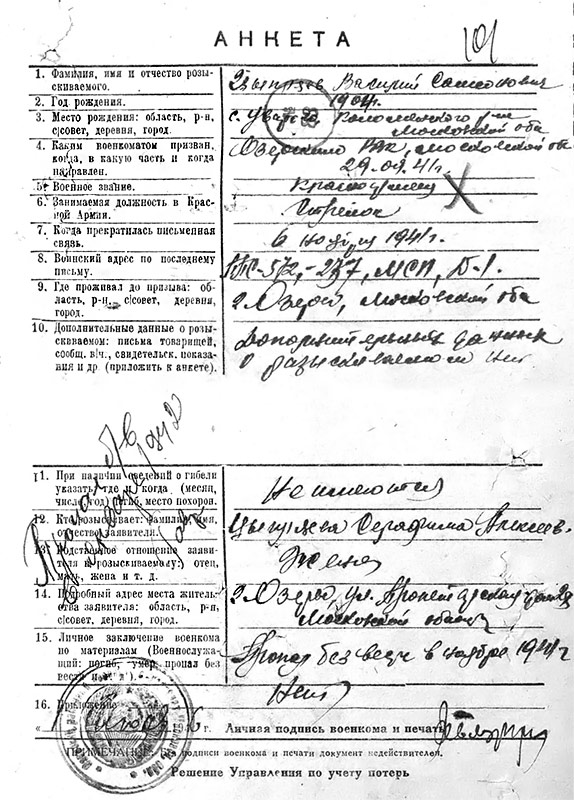 АНКЕТА
101
1. Фамилия, имя и отчество розы-
скиваемого.
Василий Самсонович
2. Год рождения.
1904г.
3. Место рождения: область, р-н,
с|совет, деревня, город.
Коломенского р-на
Московской обл
4. Каким военкоматом призван,
когда, в какую часть и когда
направлен.
Озерским РВК, Московской обл
29.09.41г.
5. Военное звание.
Красноармеец
6. Занимаемая должность в Крас-
ной Армии.
Стрелок
7. Когда прекратилась письменная
связь.
6 ноября 1941г.
8. Воинский адрес по последнему
письму.
ППС-572, МСП, Б-1.
9. Где проживал до призыва: об-
ласть, р-н, с|совет, деревня,
город.
г Озеры, Московской обл
10. Дополнительные данные о розы-
скиваемом: письма товарищей,
сообщ. в/ч., свидетельск. показа-
ния и др. (приложить к анкете).
Дополнительных данных
о разыскиваемом нет
11. При наличии сведений о гибели
указать, где и когда (месяц,
число, год) погиб, место похорон.
Не имеются
12. Кто розыскивает: фамилия, имя,
отчество заявителя.
Серафима Алексеев.
13. Родственное отношение заяви-
теля к розыскиваемому: отец,
мать, жена и т. д.
Жена
14. Подробный адрес места житель-
ства заявителя: область, р-н,
с|совет, деревня, город.
г Озеры, ул. Пролетарская
Московской области
15. Личное заключение военкома
по материалам (Военнослужа-
щий: погиб, умер, пропал без
вести и т. д.).
Пропал без вести в ноябре 1941г
16. Приложение
Нет
Личная подпись военкома и печать
Пропал б/в
1942
ПРИМЕЧАНИЕ: Без подписи военкома и печати документ недействителен.
Решение Управления по учету потерь